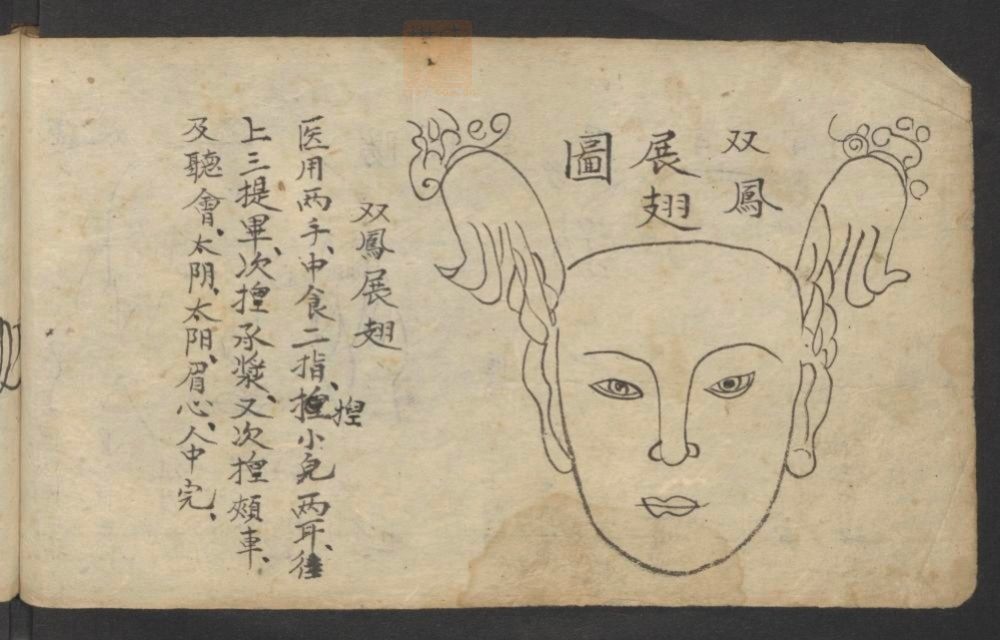 双鳳
展翅
圖
双鳳展翅
医用两手、中食二指、揑小皃两耳、往
揑
上三提畢、次揑承漿、又次揑頰車、
及聽會、太阴、太阳、眉心、人中完、